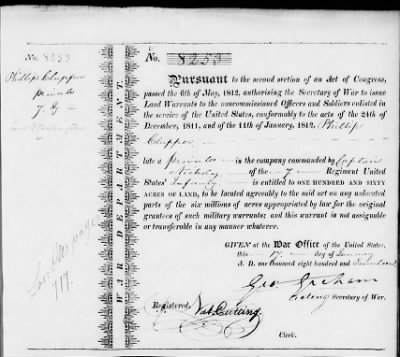 No. 8253
Phillip Clapper
private
7 Rg
No. 8253
Pursuant to the second section of an Act of Congress,
passed the 6th of May, 1812, authorising the Secretary of War to issue
Land Warrants to the noncommissioned Officers and Soldiers enlisted in
the service of the United States, conformably to the acts of the 24th of
December, 1811, and of the 11th of January, 1812. Phillip
Clapper
late a private in the company commanded by Captain
of the 7 Regiment United
States' Infantry is entitled to ONE HUNDRED AND SIXTY
ACRES OF LAND, to be located agreeably to the said act on any unlocated
parts of the six millions of acres appropriated by law for the original
grantees of such military warrants; and this warrant is not assignable
or transferable in any manner whatever.
GIVEN at the War Office of the United States,
this 17 day of January
A. D. one thousand eight hundred and
Geo. Graham
Acting Secretary of War.
Registered,
Nat Cutting
Clerk.
WAR DEPARTMENT.
page
717.